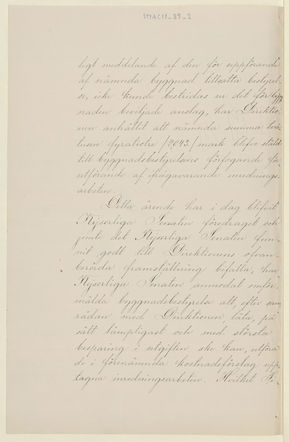 ligt meddelande af den för uppförandet
af nämnda byggnad tillsatta bestyrel-
se, icke kunde bestridas ur det för bygg
naden beviljade anslag, har Direktio-
nen anhållit att nämnda summa
fyratiotre /2043/ mark blefve ställd
till byggnadsbestyrelsens förfogande för
utförande af ifrågavarande inrednings
arbeten.
Detta ärende har i dag blifvit
Kejserliga Senaten föredraget och
det Kejserliga Senaten fun-
nit godt till Direktionens ofvan-
berörda framställning bifalla, har
Kejserliga Senaten anmodat omför-
mälda byggnadsbestyrelse att, efter sam
rådan med Direktionen låta, på
sätt lämpligast och med största
besparing i utgifter ske kan, utföra
de i förenämnda kostnadsförslag upp-
tagna inredningsarbeten. Hvilket